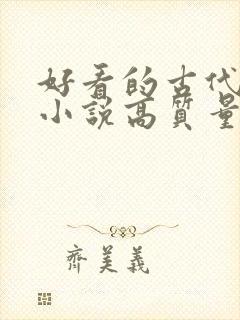 好看的古代
小説高質量
齊美義